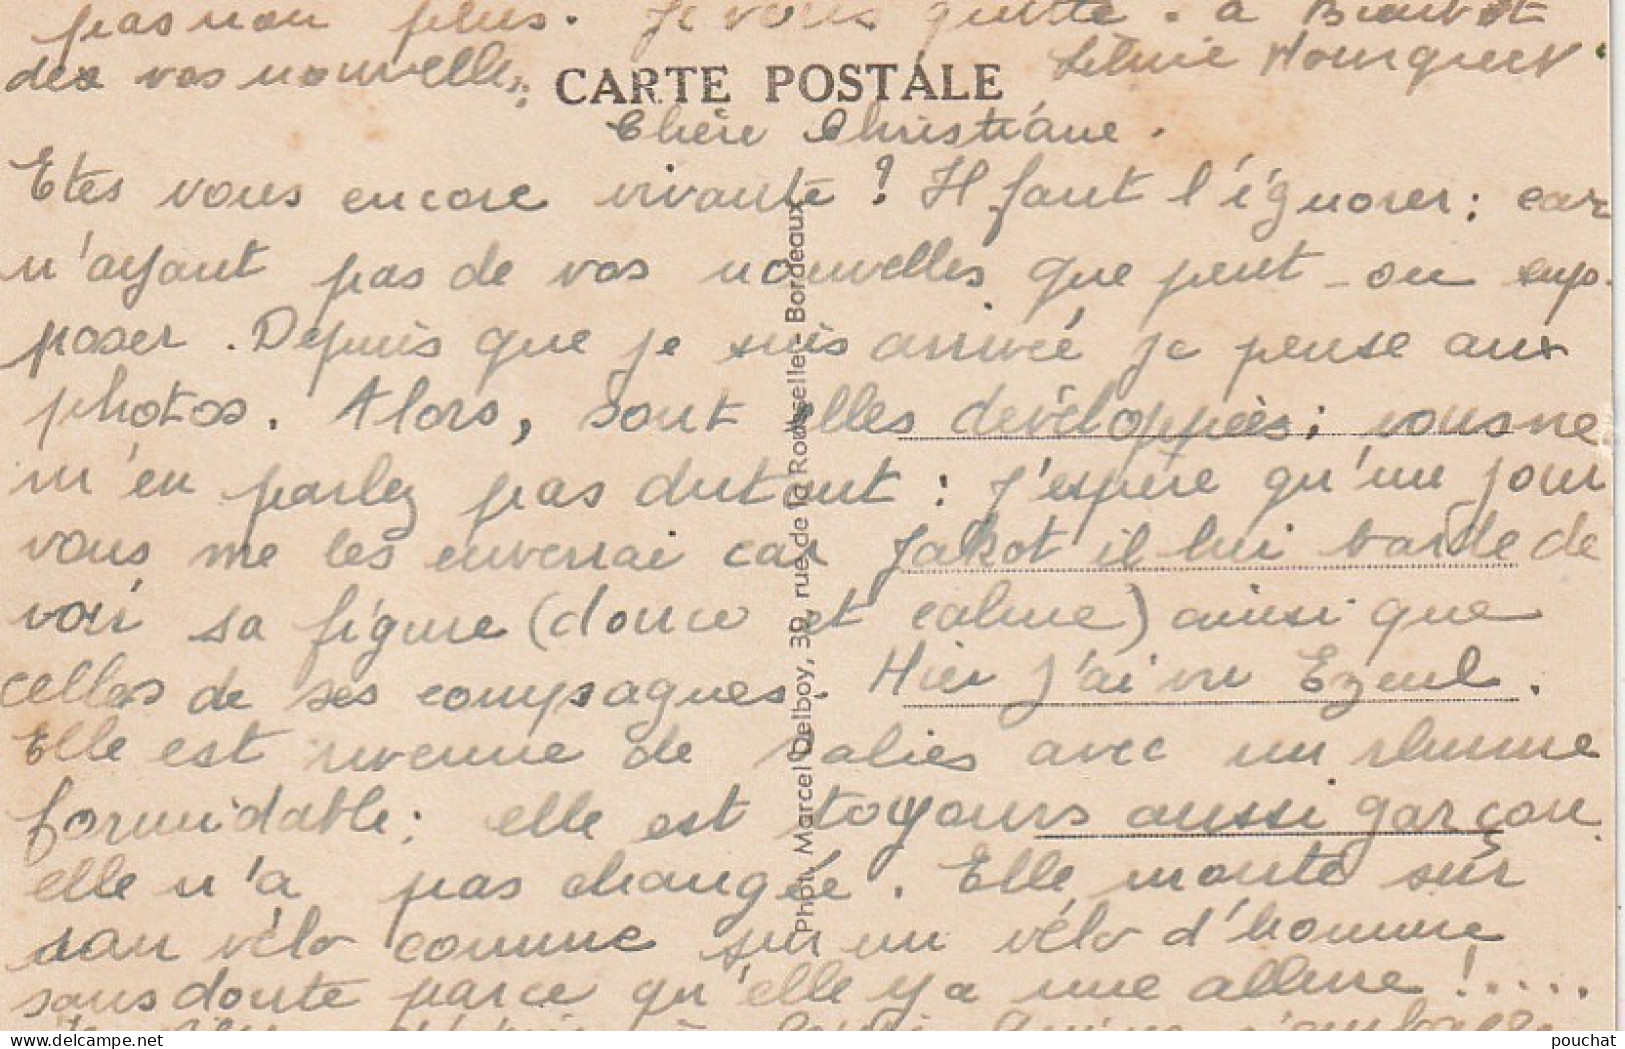 pas non plus. Je vous quitte. à Bientôt
des vos nouvelles,
CARTE POSTALE
Chère Christiane.
Etes vous encore vivante ? Il faut l'ignorer : car
n'ayant pas de vos nouvelles que peut-on sup-
poser. Depuis que je suis arrivée je pense aux
photos. Alors, sont elles développées ; vous ne
m'en parlez pas dutout : J'espère qu'un jour
vous me les enverrai car Jakot il lui tarde de
voir sa figure (douce et calme) ainsi que
celles de ses compagnes. Hier j'ai vu
Elle est revenue de Salies avec un rhume
formidable ; elle est toujours aussi garçon.
elle n'a pas changée. Elle monte sur
son vélo comme sur un vélo d'homme
sans doute parce qu'elle y a une allure !....
Phot. Marcel Delboy, 39, rue de la Rousselle - Bordeaux
delcampe.net
pouchat